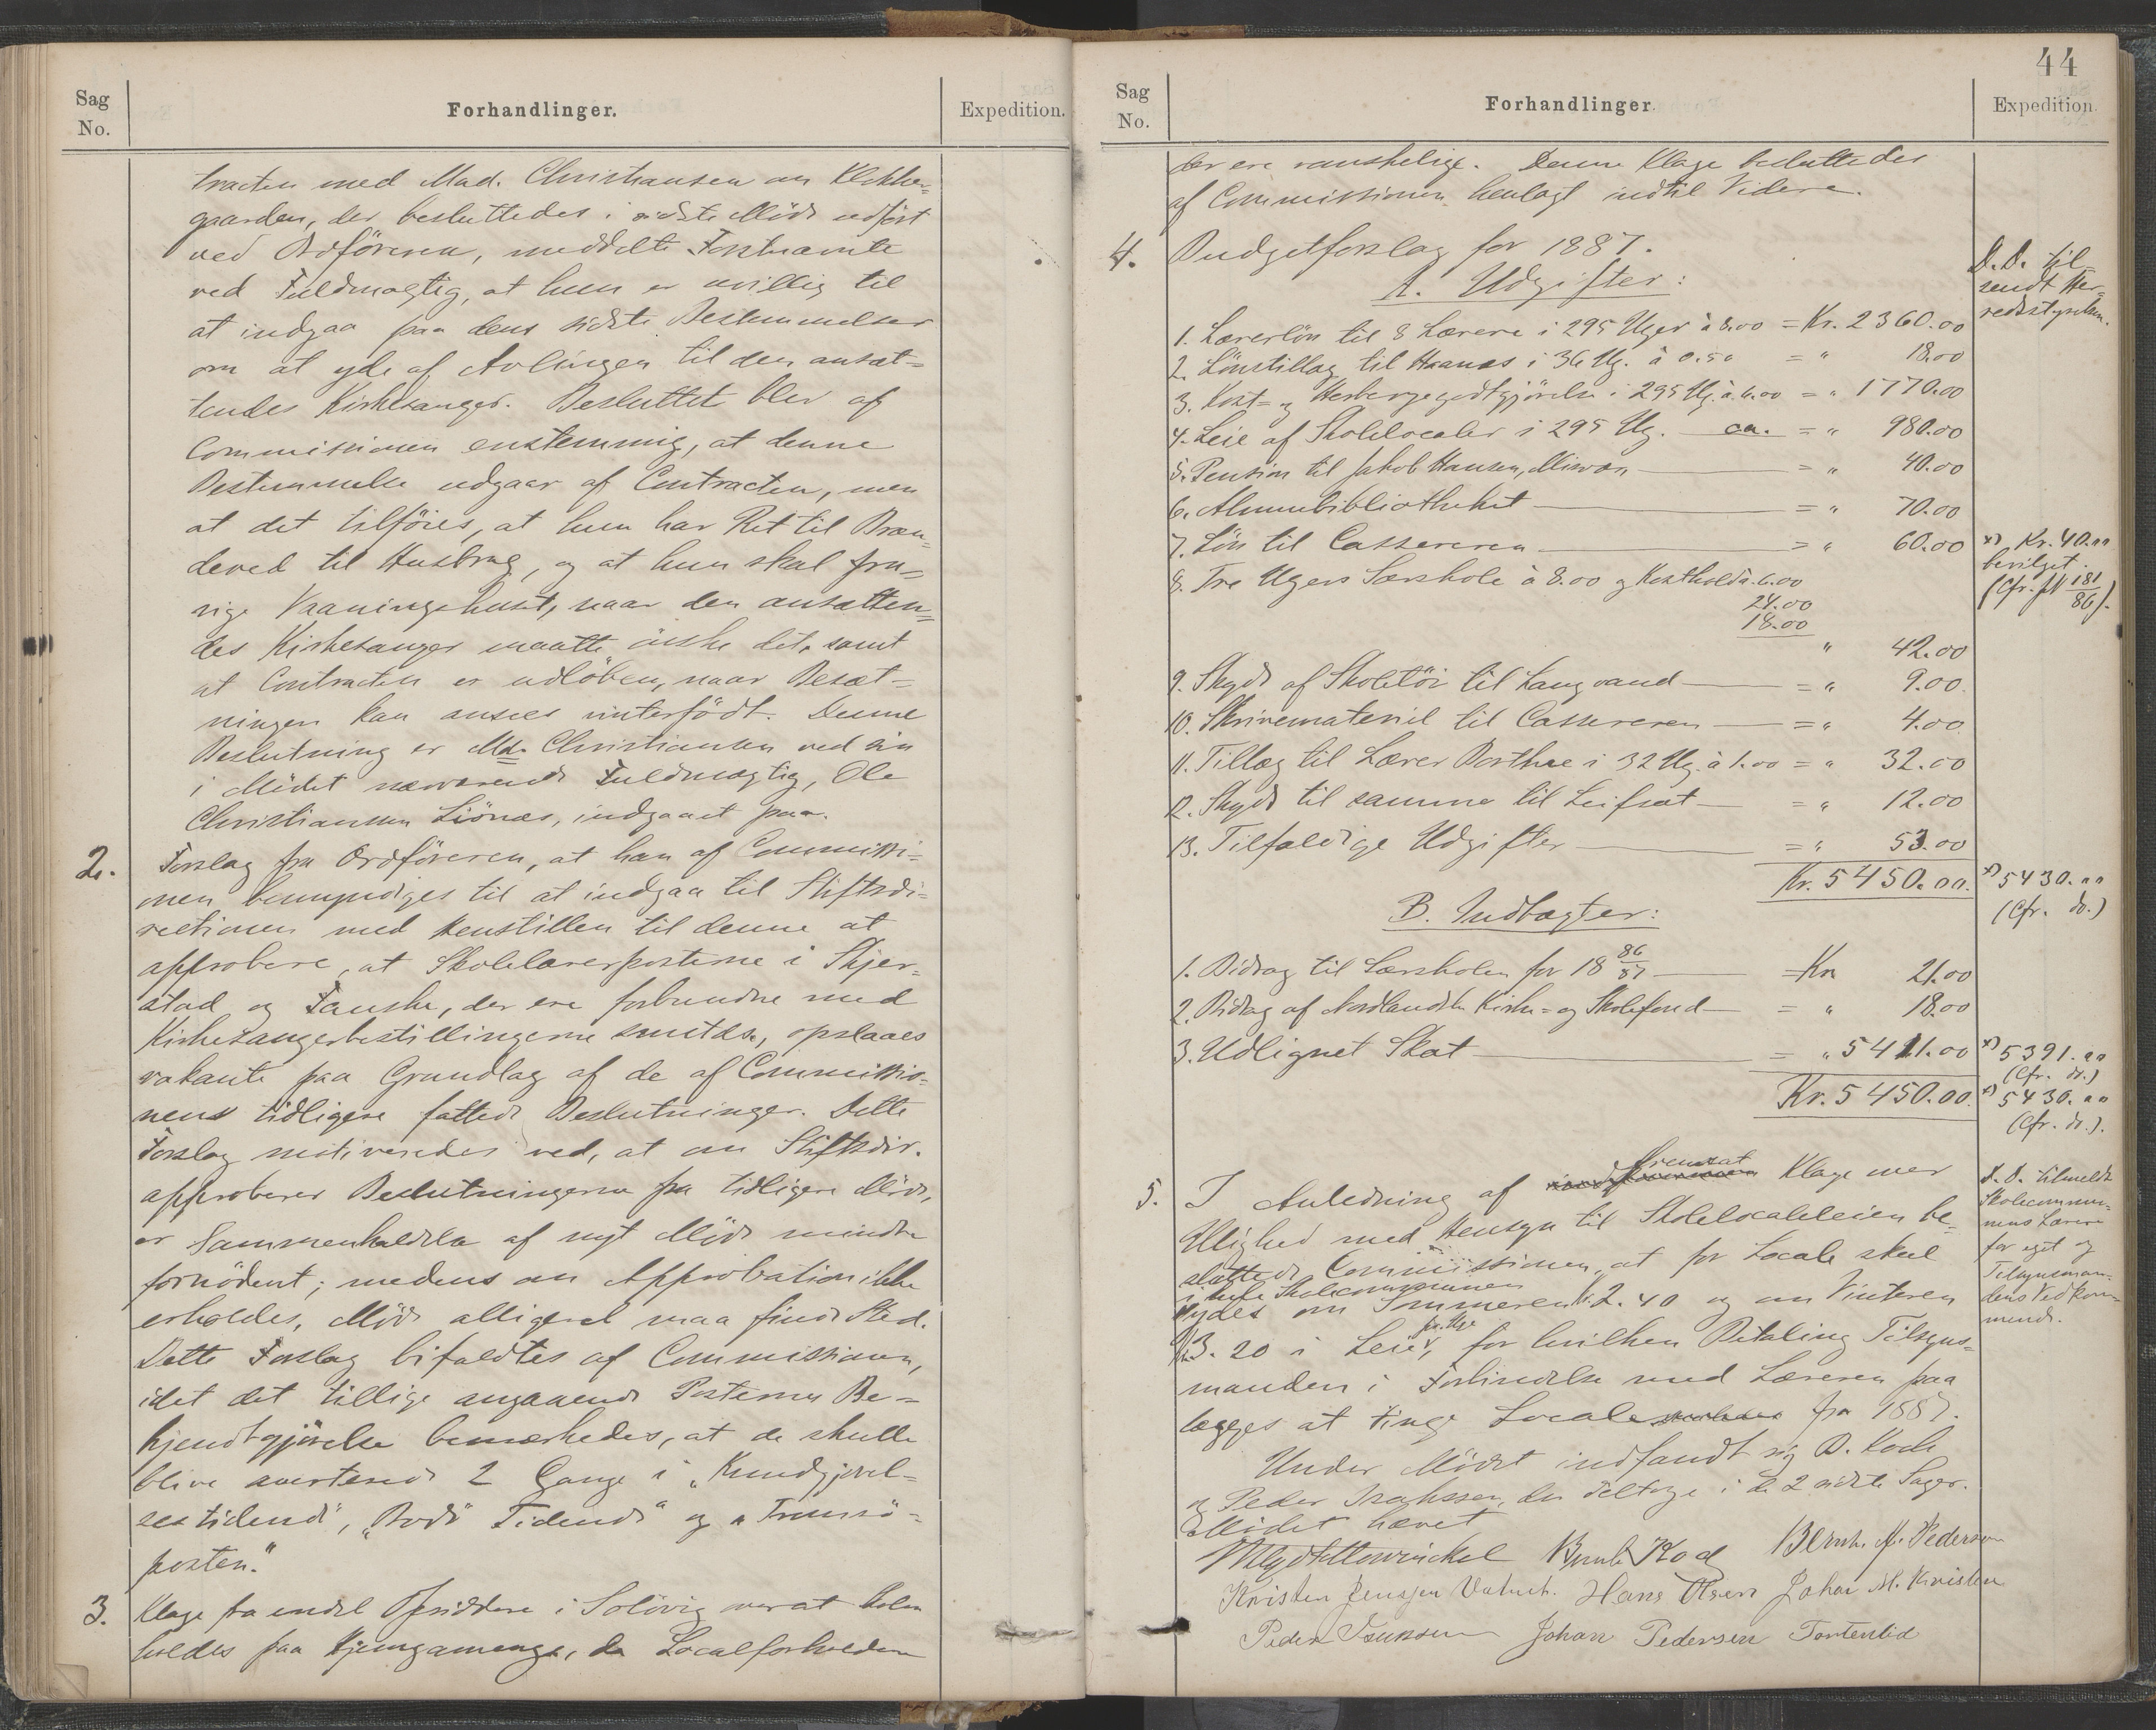 Sag
No.
Forhandlinger.
Expedition.
tracten med Mad. Christiansen om Klokker-
gaarden, der besluttedes i sidste Møde udført
ved Ordføreren, meddelte Fortnævnte
ved Fuldmægtig, at hun er uvillig til
at indgaa paa dens sidste Bestemmelser
om at yde af Avlingen til den ansæt-
tendes Kirkesanger. Besluttet blev af
Commissionen enstemmig, at denne
Bestemmelse udgaar af Contracten, men
at det tilføies, at hun har Ret til Bræn-
deved til Husbrug, og at hun skal fra-
vige Vaaningshuset, naar den ansætten-
des Kirkesanger maatte ønske det, samt
at Contracten er udløben, naar Besæt-
ningen kan ansees vinterfødt. Denne
Beslutning er Md. Christiansen ved sin
i Mødet nærværende Fuldmægtig, Ole
Christiansen Liønæs, indgaaet paa.
2. Forslag fra Ordføreren, at han af Commissi-
onen bemyndiges til at indgaa til Stiftsdi-
rectionen med Henstillen til denne at
approbere, at Skolelærerposterne i Skjer-
stad og Fauske, der ere forbundne med
Kirkesangerbestillingerne smstds., opslaaes
vakante paa Grundlag af de af Commissio-
nens tidligere fattede Beslutninger. Dette
Forslag motiveredes ved, at om Stiftsdir.
approberer Beslutningerne fra tidligere Møde,
er Sammenholdelse af nyt Møde mindre
fornødent; medens om Approbation ikke
erholdes, Møde alligevel maa finde Sted.
Dette Forslag bifaldtes af Commissionen,
idet det tillige angaaende Posternes Be-
kjendtgjørelse bemærkedes, at de skulle
blive averterede 2 Gange i „Kundgjørel-
sestidende", „Bodø Tidende" og „Tromsø-
posten."
3. Klage fra endel Opsiddere i Soløvig over at Skolen
holdes paa Kjeungamenge, da Localforholdene
44
Sag
No.
Forhandlinger.
Expedition.
der ere vanskelige. Denne Klage besluttedes
af Commissionen henlagt indtil Videre.
4. Budgetforslag for 1887.
D.D. til-
sendt Her-
redsstyrelsen.
A. Udgifter:
1. Lærerløn til 8 Lærere i 295 Uger à 8.00 = Kr. 2360.00
2. Lønstillæg til Haanæs i 36 Ug. à 0.50 = " 18.00
3. Kost- og Herbergegodtgjørelse i 295 Ug. à 6.00 = " 1770.00
4. Leie af Skolelocaler i 295 Ug. ca. = " 980.00
5. Pension til Jakob Hansen, Misvær = " 40.00
6. Almuebibliotheket = " 70.00
7. Løn til Cassereren = " 60.00
x) Kr. 40.00
bevilget.
(Cfr. № 181/86).
8. Tre Ugers Særskole à 8.00 og Kosthold à 6.00
24.00
18.00
" 42.00
9. Skyds af Skoletøi til Langvand = " 9.00
10. Skrivemateriel til Cassereren = " 4.00
11. Tillæg til Lærer Dorthe i 32 Ug. à 1.00 = " 32.00
12. Skyds til samme til Leifsæt = " 12.00
13. Tilfældige Udgifter = " 53.00
Kr. 5450.00.
x) 5430.00
(Cfr. do.)
B. Indtægter:
1. Bidrag til Særskolen for 18 86/87 = Kr. 21.00
2. Bidrag af Nordlandske Kirke- og Skolefond = " 18.00
3. Udlignet Skat = " 5411.00
x) 5391.00
(Cfr. do.)
Kr. 5450.00.
x) 5430.00
(Cfr. do.).
5. I Anledning af fremsat Klage over
Ulighed med Hensyn til Skolelocaleleien be-
sluttede Commissionen, at for Locale skal
i hele Skolecommunen
ydes om Sommeren Kr. 2.40 og om Vinteren
Kr. 3.20 i Leie pr. Uge, for hvilken Betaling Tilsyns-
manden i Forbindelse med Læreren paa
lægges at tinge Locale fra 1887.
D.D. tilmeldt
Skolecommu-
nens Lærere
for eget og
Tilsynsman-
dens Vedkom-
mende.
Under Mødet indfandt sig B. Koch
og Peder Isaksen, der deltoge i de 2 sidste Sager.
Mødet hævet
Bernh. Kog Bernh. A. Pedersen
Kristen Jensen Hans Olsen Johan M. Kristen
Peder Isaksen Johan Pedersen Tortenlid